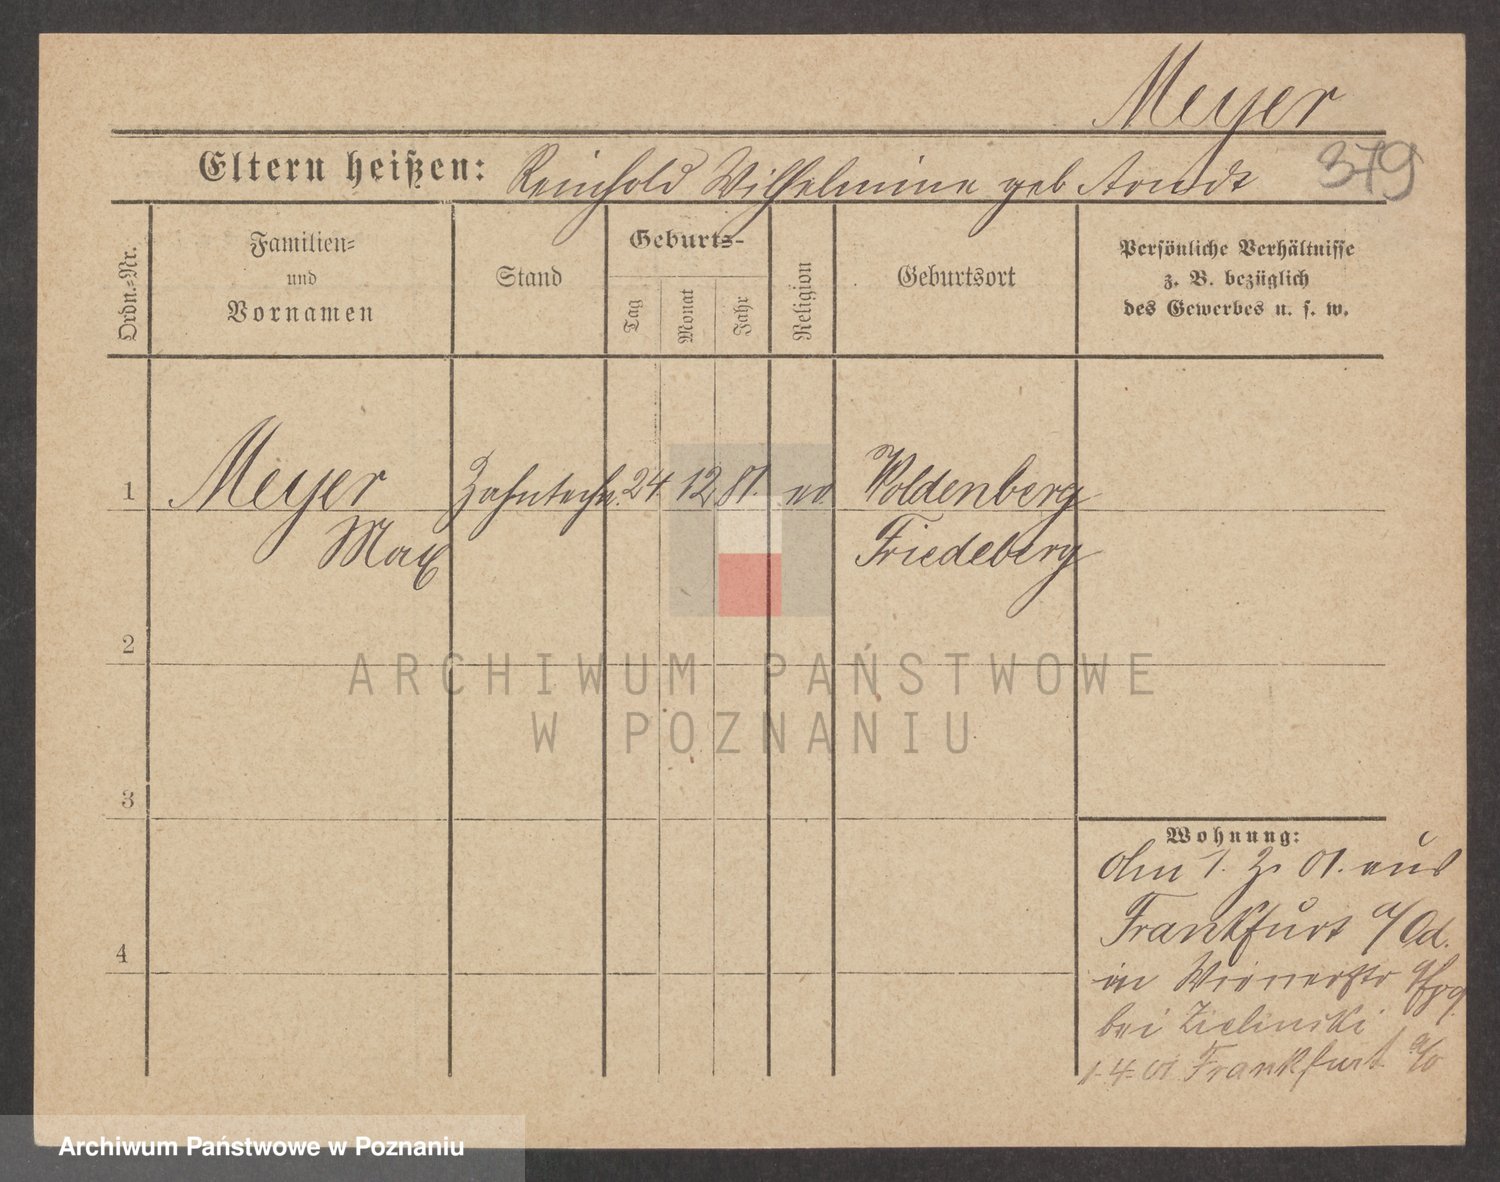 Meyer
379
Eltern heißen: Reinhold Wilhelmine geb Arndt
Ordn.-Nr.
Familien-
und
Vornamen
Stand
Geburts-
Tag
Monat
Jahr
Religion
Geburtsort
Persönliche Verhältnisse
z. B. bezüglich
des Gewerbes u. s. w.
1
Meyer
Max
Zahntechn. 24. 12. 81. ev.
Woldenberg
Friedeberg
2
ARCHIWUM PAŃSTWOWE
W POZNANIU
3
Wohnung:
Am 1. 01. aus
Frankfurt a/Od.
in Wienerstr
bei Zielinski
1-4-01 Frankfurt a/O
4
Archiwum Państwowe w Poznaniu